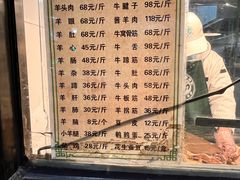 羊头肉 68元/斤 牛腱子 98元/斤
羊眼 68元/斤 酱羊肉 118元/斤
羊肚 68元/斤 牛窝骨筋 68元/斤
羊心 45元/斤 牛舌 98元/斤
羊肠 48元/斤 牛蹄筋 68元/斤
羊杂 38元/斤 牛头肉 58元/斤
羊蹄 38元/斤 牛板筋 58元/斤
羊肝 38元/斤 牛肚 68元/斤
羊脑 8元/个 豆皮 12元/斤
小羊腿 35元/斤 鹌鹑蛋 25元/斤
28元/斤 花生